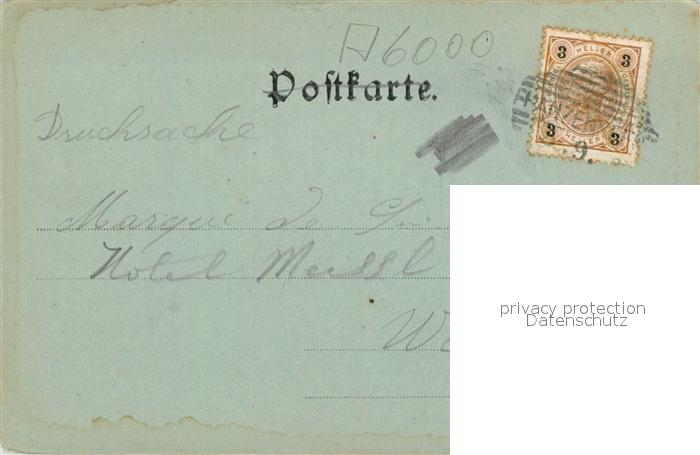 A6000
Postkarte.
Drucksache
3 HELLER 3
3 HELLER 3
9.
Marque de
Hotel Meissl
W
privacy protection
Datenschutz